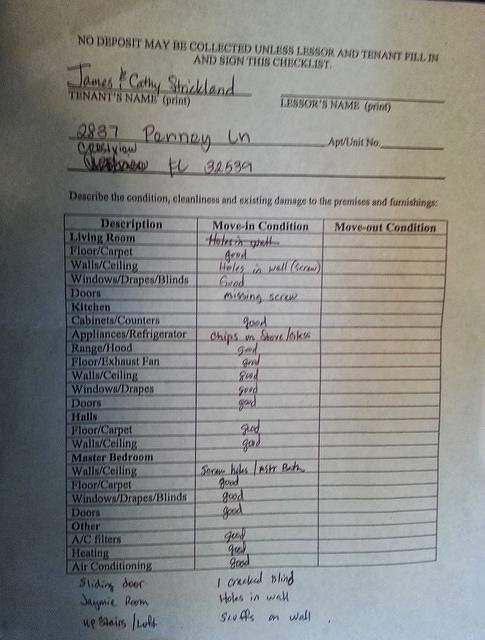 NO DEPOSIT MAY BE COLLECTED UNLESS LESSOR AND TENANT FILL IN
AND SIGN THIS CHECKLIST.
James & Cathy Strickland
TENANT'S NAME (print) LESSOR'S NAME (print)
2837 Penney Ln Apt/Unit No.
Crestview
FL 32539
Describe the condition, cleanliness and existing damage to the premises and furnishings:
Description Move-in Condition Move-out Condition
Living Room Holes in wall
Floor/Carpet good
Walls/Ceiling Holes in wall (screw)
Windows/Drapes/Blinds Good
Doors missing screw
Kitchen
Cabinets/Counters good
Appliances/Refrigerator chips on Stove
Range/Hood good
Floor/Exhaust Fan good
Walls/Ceiling good
Windows/Drapes good
Doors good
Halls
Floor/Carpet good
Walls/Ceiling good
Master Bedroom
Walls/Ceiling Screw holes / Mstr Bath
Floor/Carpet good
Windows/Drapes/Blinds good
Doors good
Other
A/C filters good
Heating good
Air Conditioning good
Sliding door 1 cracked Blind
Jaymie Room Holes in wall
upstairs/Loft Scuffs on wall.